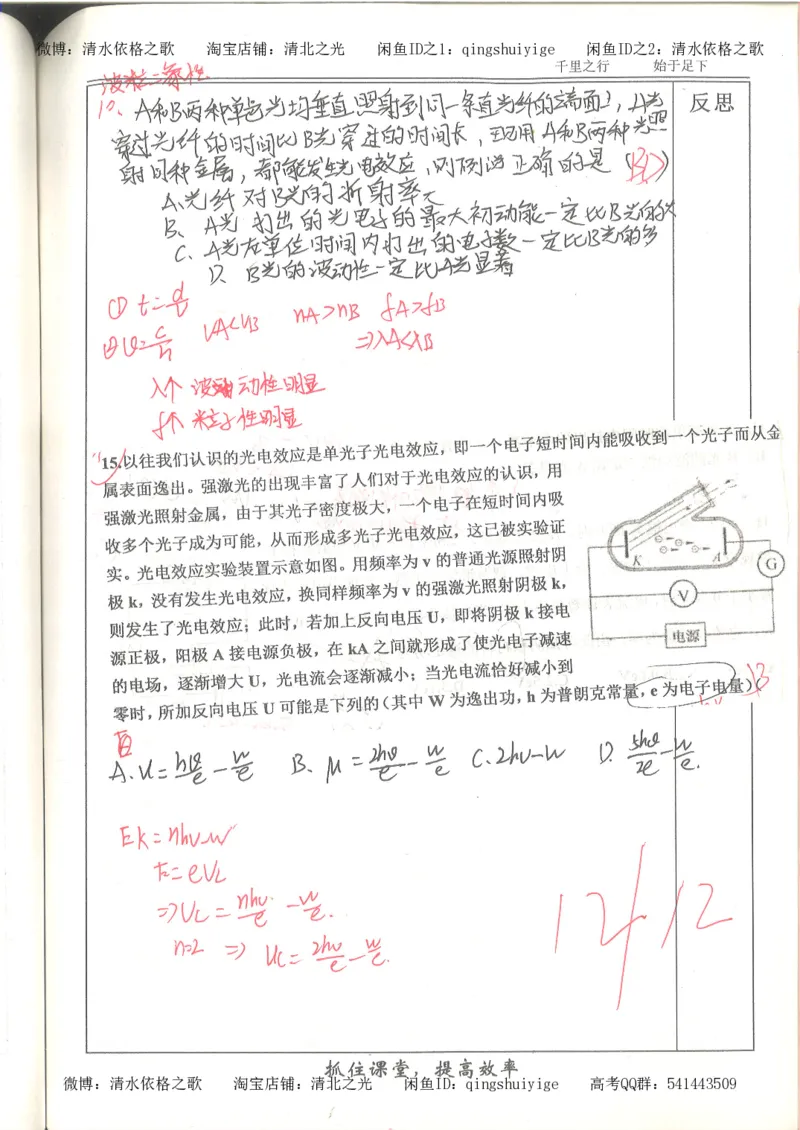 微博：清水依格之歌　　淘宝店铺：清北之光　　闲鱼ID之1：qingshuiyige　　闲鱼ID之2：清水依格之歌
千里之行　　始于足下
波粒二象性
10、A和B两种单色光均垂直照射到同一条直光纤的端面上，A光
穿过光纤的时间比B光穿过的时间长，现用A和B两种光照
射同种金属，都能发生光电效应，则下列说法正确的是（BD）
反思
A.光纤对B光的折射率大
B、A光打出的光电子的最大初动能一定比B光的大
C、A光在单位时间内打出的电子数一定比B光的多
D、B光的波动性一定比A光显著
① t=d/v
② v=c/n　vA<vB　nA>nB　fA>fB
⇒λA<λB
λ↑ 波动性明显
f↑ 粒子性明显
15.以往我们认识的光电效应是单光子光电效应，即一个电子短时间内能吸收到一个光子而从金
属表面逸出。强激光的出现丰富了人们对于光电效应的认识，用
强激光照射金属，由于其光子密度极大，一个电子在短时间内吸
收多个光子成为可能，从而形成多光子光电效应，这已被实验证
实。光电效应实验装置示意如图。用频率为 v 的普通光源照射阴
极 k，没有发生光电效应，换同样频率为 v 的强激光照射阴极 k，
则发生了光电效应；此时，若加上反向电压 U，即将阴极 k 接电
源正极，阳极 A 接电源负极，在 kA 之间就形成了使光电子减速
的电场，逐渐增大 U，光电流会逐渐减小；当光电流恰好减小到
零时，所加反向电压 U 可能是下列的（其中 W 为逸出功，h 为普朗克常量，e 为电子电量）（B
K　A
G
V
电源
A.U=hυ/e-W/e　B、U=2hυ/e-W/e　C.2hυ-W　D.5hυ/2e-W/e.
Ek=nhυ-W
Ek=eUc
⇒Uc=nhυ/e-W/e.
n=2 ⇒ Uc=2hυ/e-W/e.
12/12
抓住课堂，提高效率
微博：清水依格之歌　　淘宝店铺：清北之光　　闲鱼ID：qingshuiyige　　高考QQ群：541443509